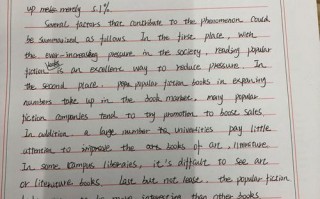 up make merely 5.1%
Several factors that contribute to the phenomenon could
be summarized as follows. In the first place, with
the ever-increasing pressure in the society, reading popular
fiction books is an excellent way to reduce pressure. In
the second place, popular fiction books in expanding
numbers take up in the book market, many popular
fiction companies tend to try promotion to boose sales.
In addition, a large number to universities pay little
attention to improve the books of art, literature.
In some campus libraries, it's difficult to see art
or literature books. Last but not loose, the popular fiction
be more interesting than other books